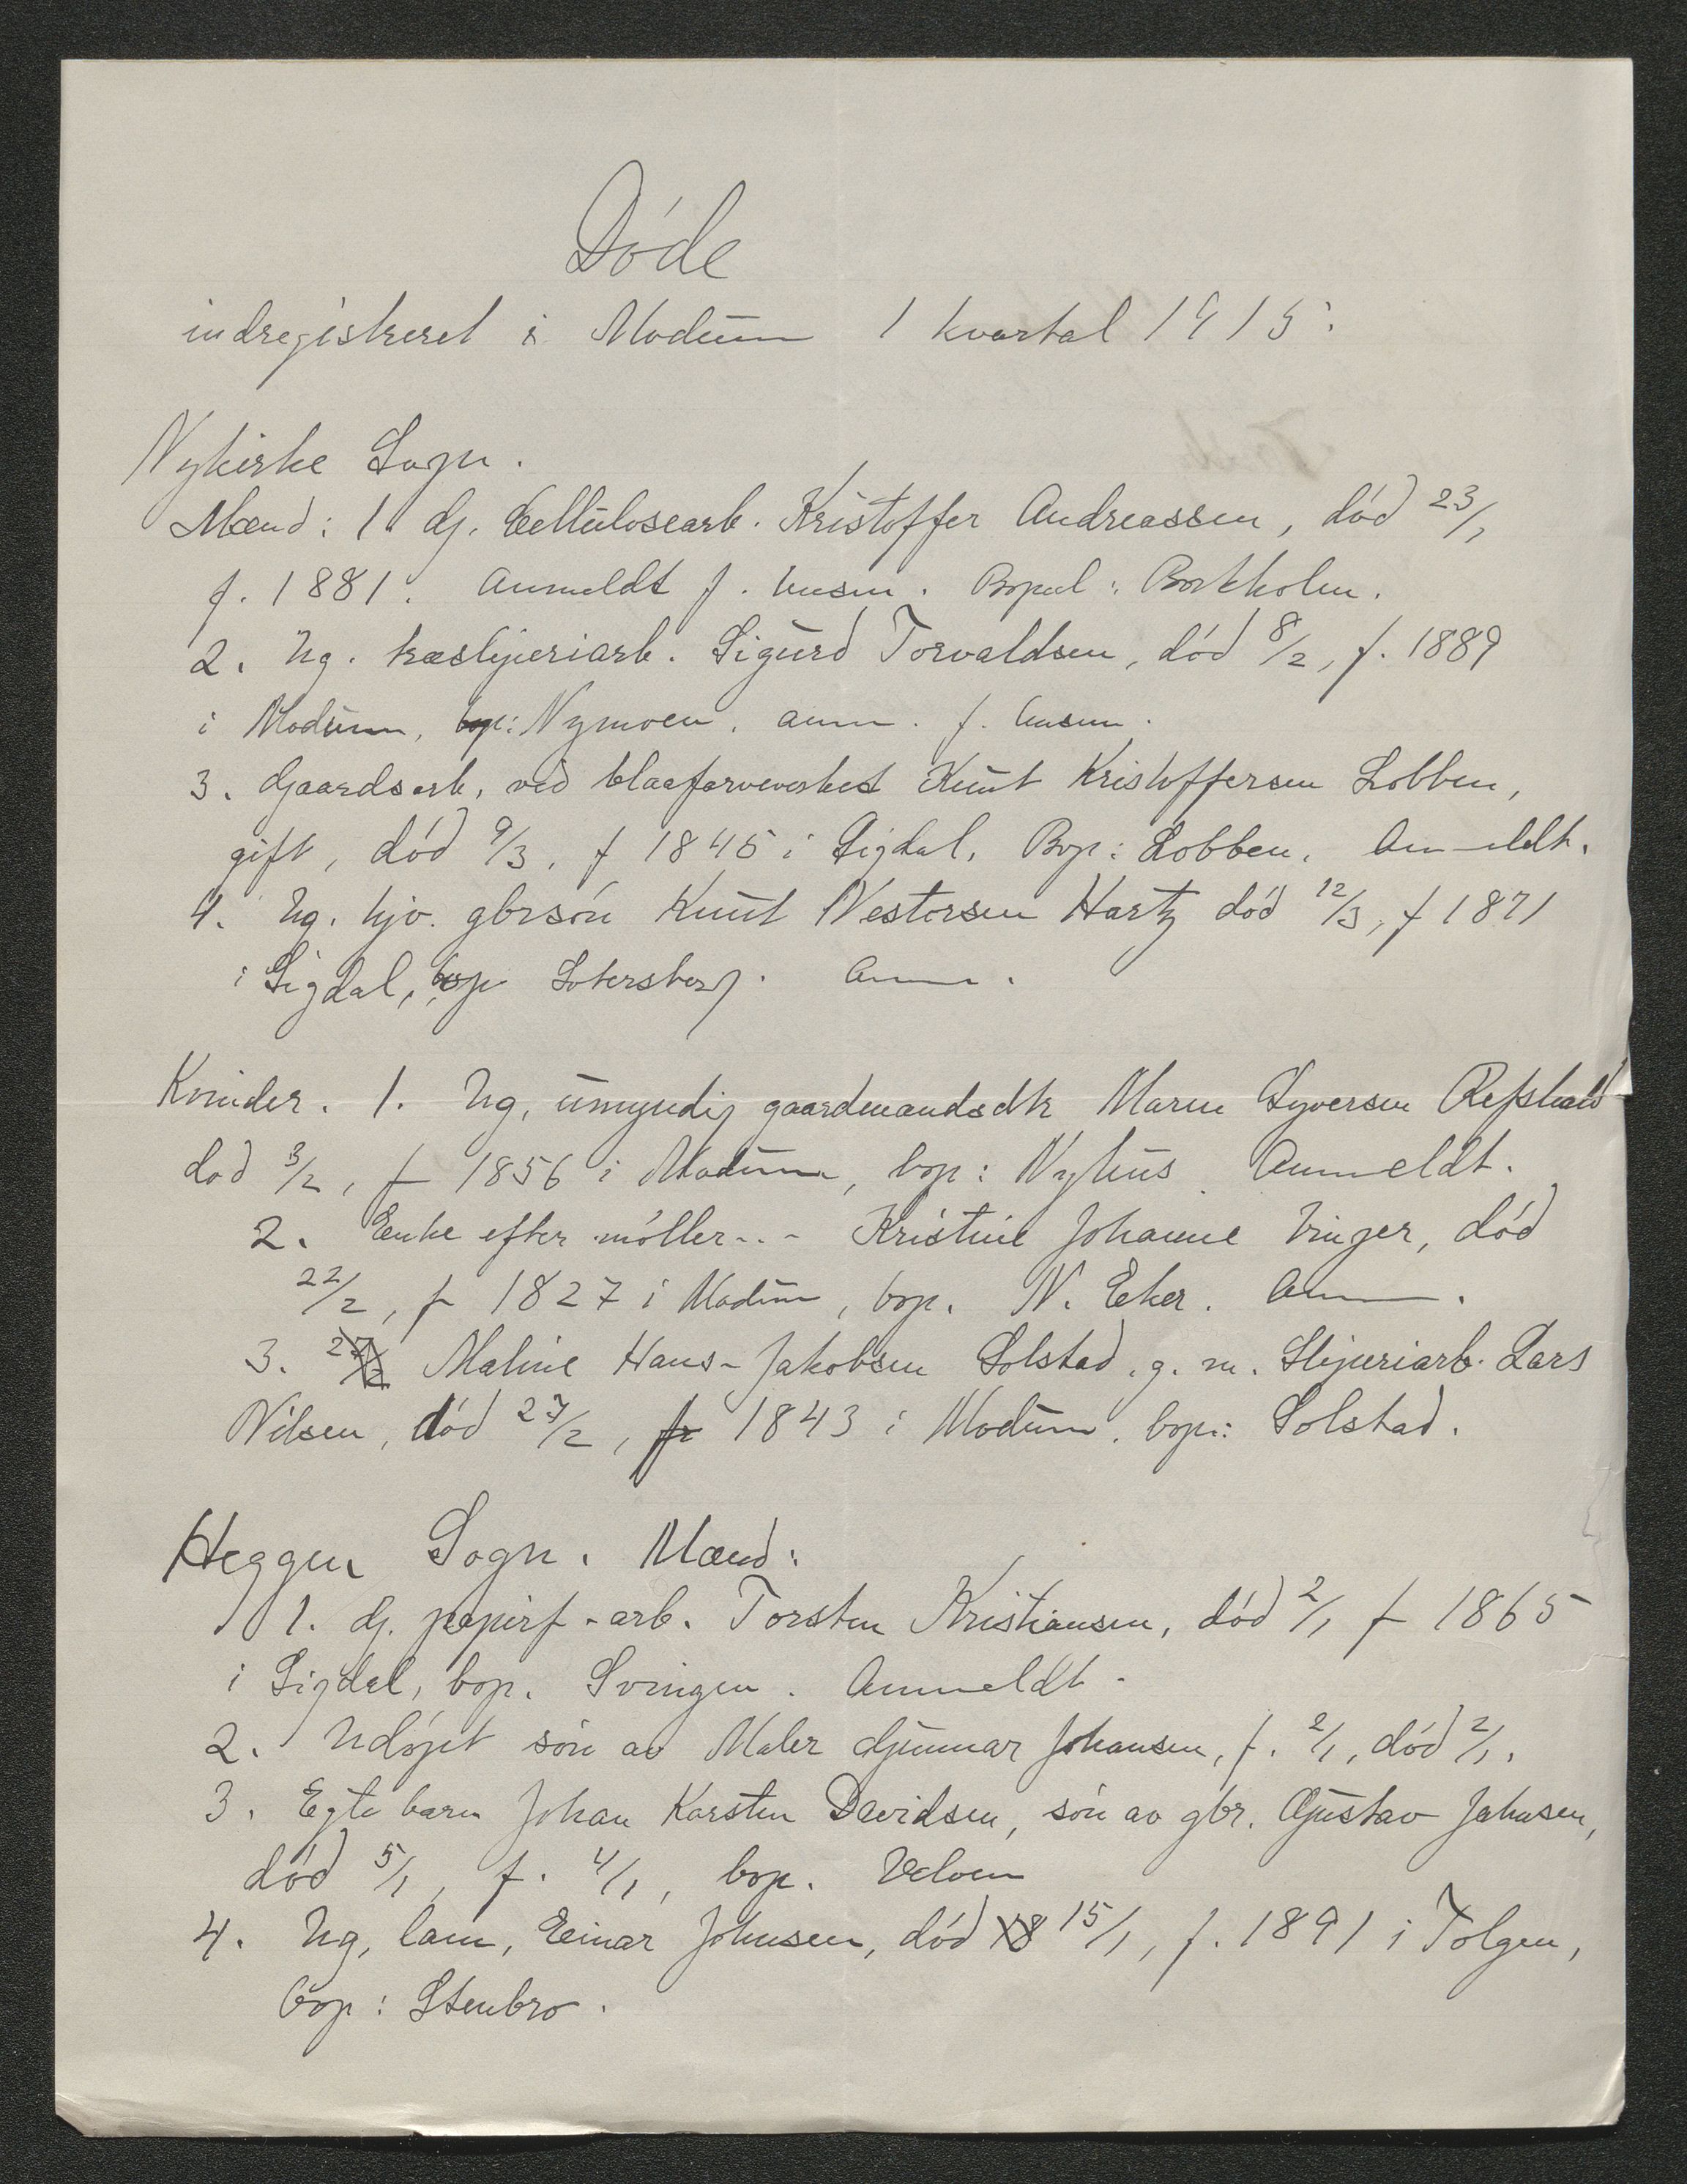 Døde
indregistreret i Modum 1 kvartal 1915:
Nykirke Sogn.
Mænd: 1. Gj. Cellulosearb. Kristoffer Andreassen, død 23/1
f. 1881. Anmeldt f. Bopæl:
2. Ug. træsliperiarb. Sigurd Torvaldsen, død 8/2, f. 1889
i Modum, bop: Nymoen. anm. f.
3. Gaardsarb. ved blaafarveverket Knut Kristoffersen Lobben,
gift, død 9/3, f 1845 i Sigdal. Bop: Lobben. Anmeldt.
4. Ug. hjv. gbrsøn Knut Nestorsen Hartz død 12/3, f 1871
i Sigdal, bop Sotersberg. Anm.
Kvinder. 1. Ug. umyndig gaardmandsdtr Maren Syversen
død 3/2, f 1856 i Modum, bop: Nyhus. Anmeldt.
2. Enke efter møller - - - Kristine Johanne Unger, død
22/2, f 1827 i Modum, bop. N. Eker. Anm.
3. Maline Hans-Jakobsen Solstad. g. m. Sliperiarb. Lars
Nilsen, død 27/2, f 1843 i Modum. bop: Solstad.
Heggen Sogn. Mænd:
1. Gj. papirf.-arb. Torsten Kristiansen, død 2/1 f 1865
i Sigdal, bop. Svingen. Anmeldt.
2. Udøpt søn av Maler Gunnar Johansen, f. 2/1, død 2/1.
3. Egte barn Johan Karsten Davidsen, søn av gbr. Gustav Johnsen,
død 5/1, f. 4/1, bop.
4. Ug. Einar Johnsen, død 15/1, f. 1891 i Tolgen,
bop: Stenbro.